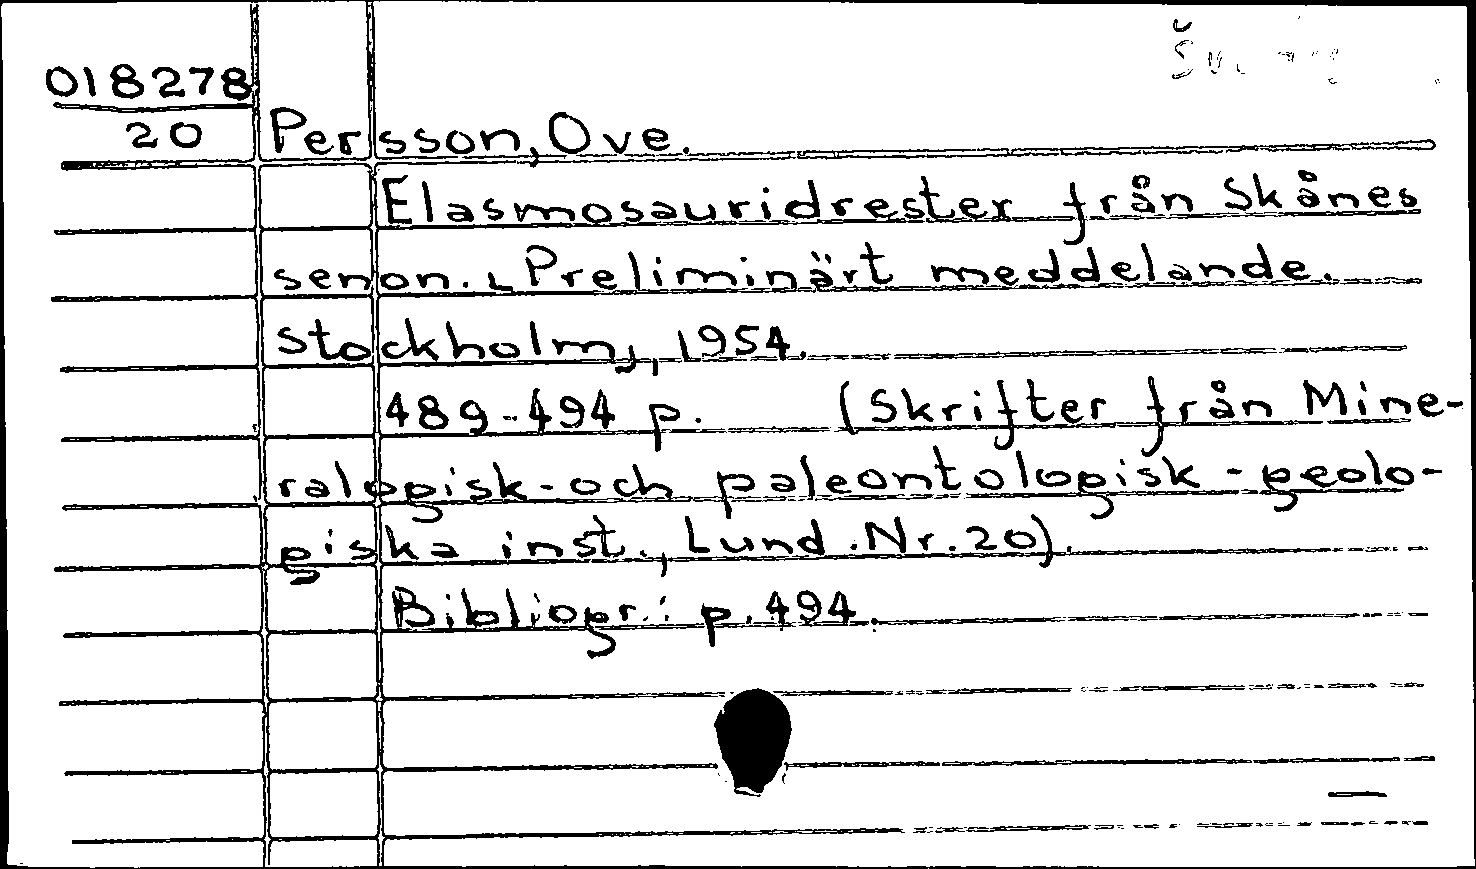 018278
20
Persson, Ove.
Elasmosauridrester från Skånes
senon. Preliminärt meddelande.
Stockholm, 1954.
489-494 p. (Skrifter från Mine-
ralogisk- och paleontologisk-geolo-
giska inst., Lund. Nr. 20).
Bibliogr.: p. 494.